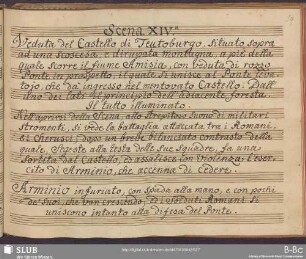 Scena XIV.
Veduta del Castello di Teutoburgo, situato sopra
ad una scoscesa, e diruposta montagna, a piè della
quale scorre il fiume Amisia, con veduta di rozzo
Ponte in prospetto, il quale si unisce al Ponte leva-
tojo, che dà ingresso nel mentovato Castello. Dall'
uno dei lati il principio di una foresta.
Il tutto illuminato.
Nell'aprirsi della Scena, allo strepitoso suono di militari
stromenti, si vede la battaglia attaccata tra i Romani,
ei Cherusci. Dopo un breve ostinato contrasto della
quale, Segeste alla testa delle sue Squadre, fa una
sortita dal Castello, ed assalisce con violenza l'eser-
cito di Arminio, che accenna di cedere.
Arminio infuriato, con spada alla mano, e con pochi
de' suoi, che van crescendo, ei Soldati Romani si
uniscono intanto alla difesa del Ponte.
SLUB
B-Bc